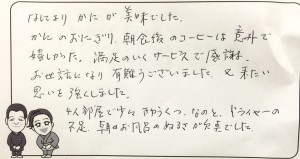 なにより かにが 美味でした。
かにのおにぎり、朝食後のコーヒーは意外で
嬉しかった。満足のいくサービスで感謝。
お世話になり有難うございました。又来たい
思いを強くしました。
4人部屋で少々きゅうくつ、なのと、ドライヤーの
不足、朝のお風呂のぬるさが欠点でした。